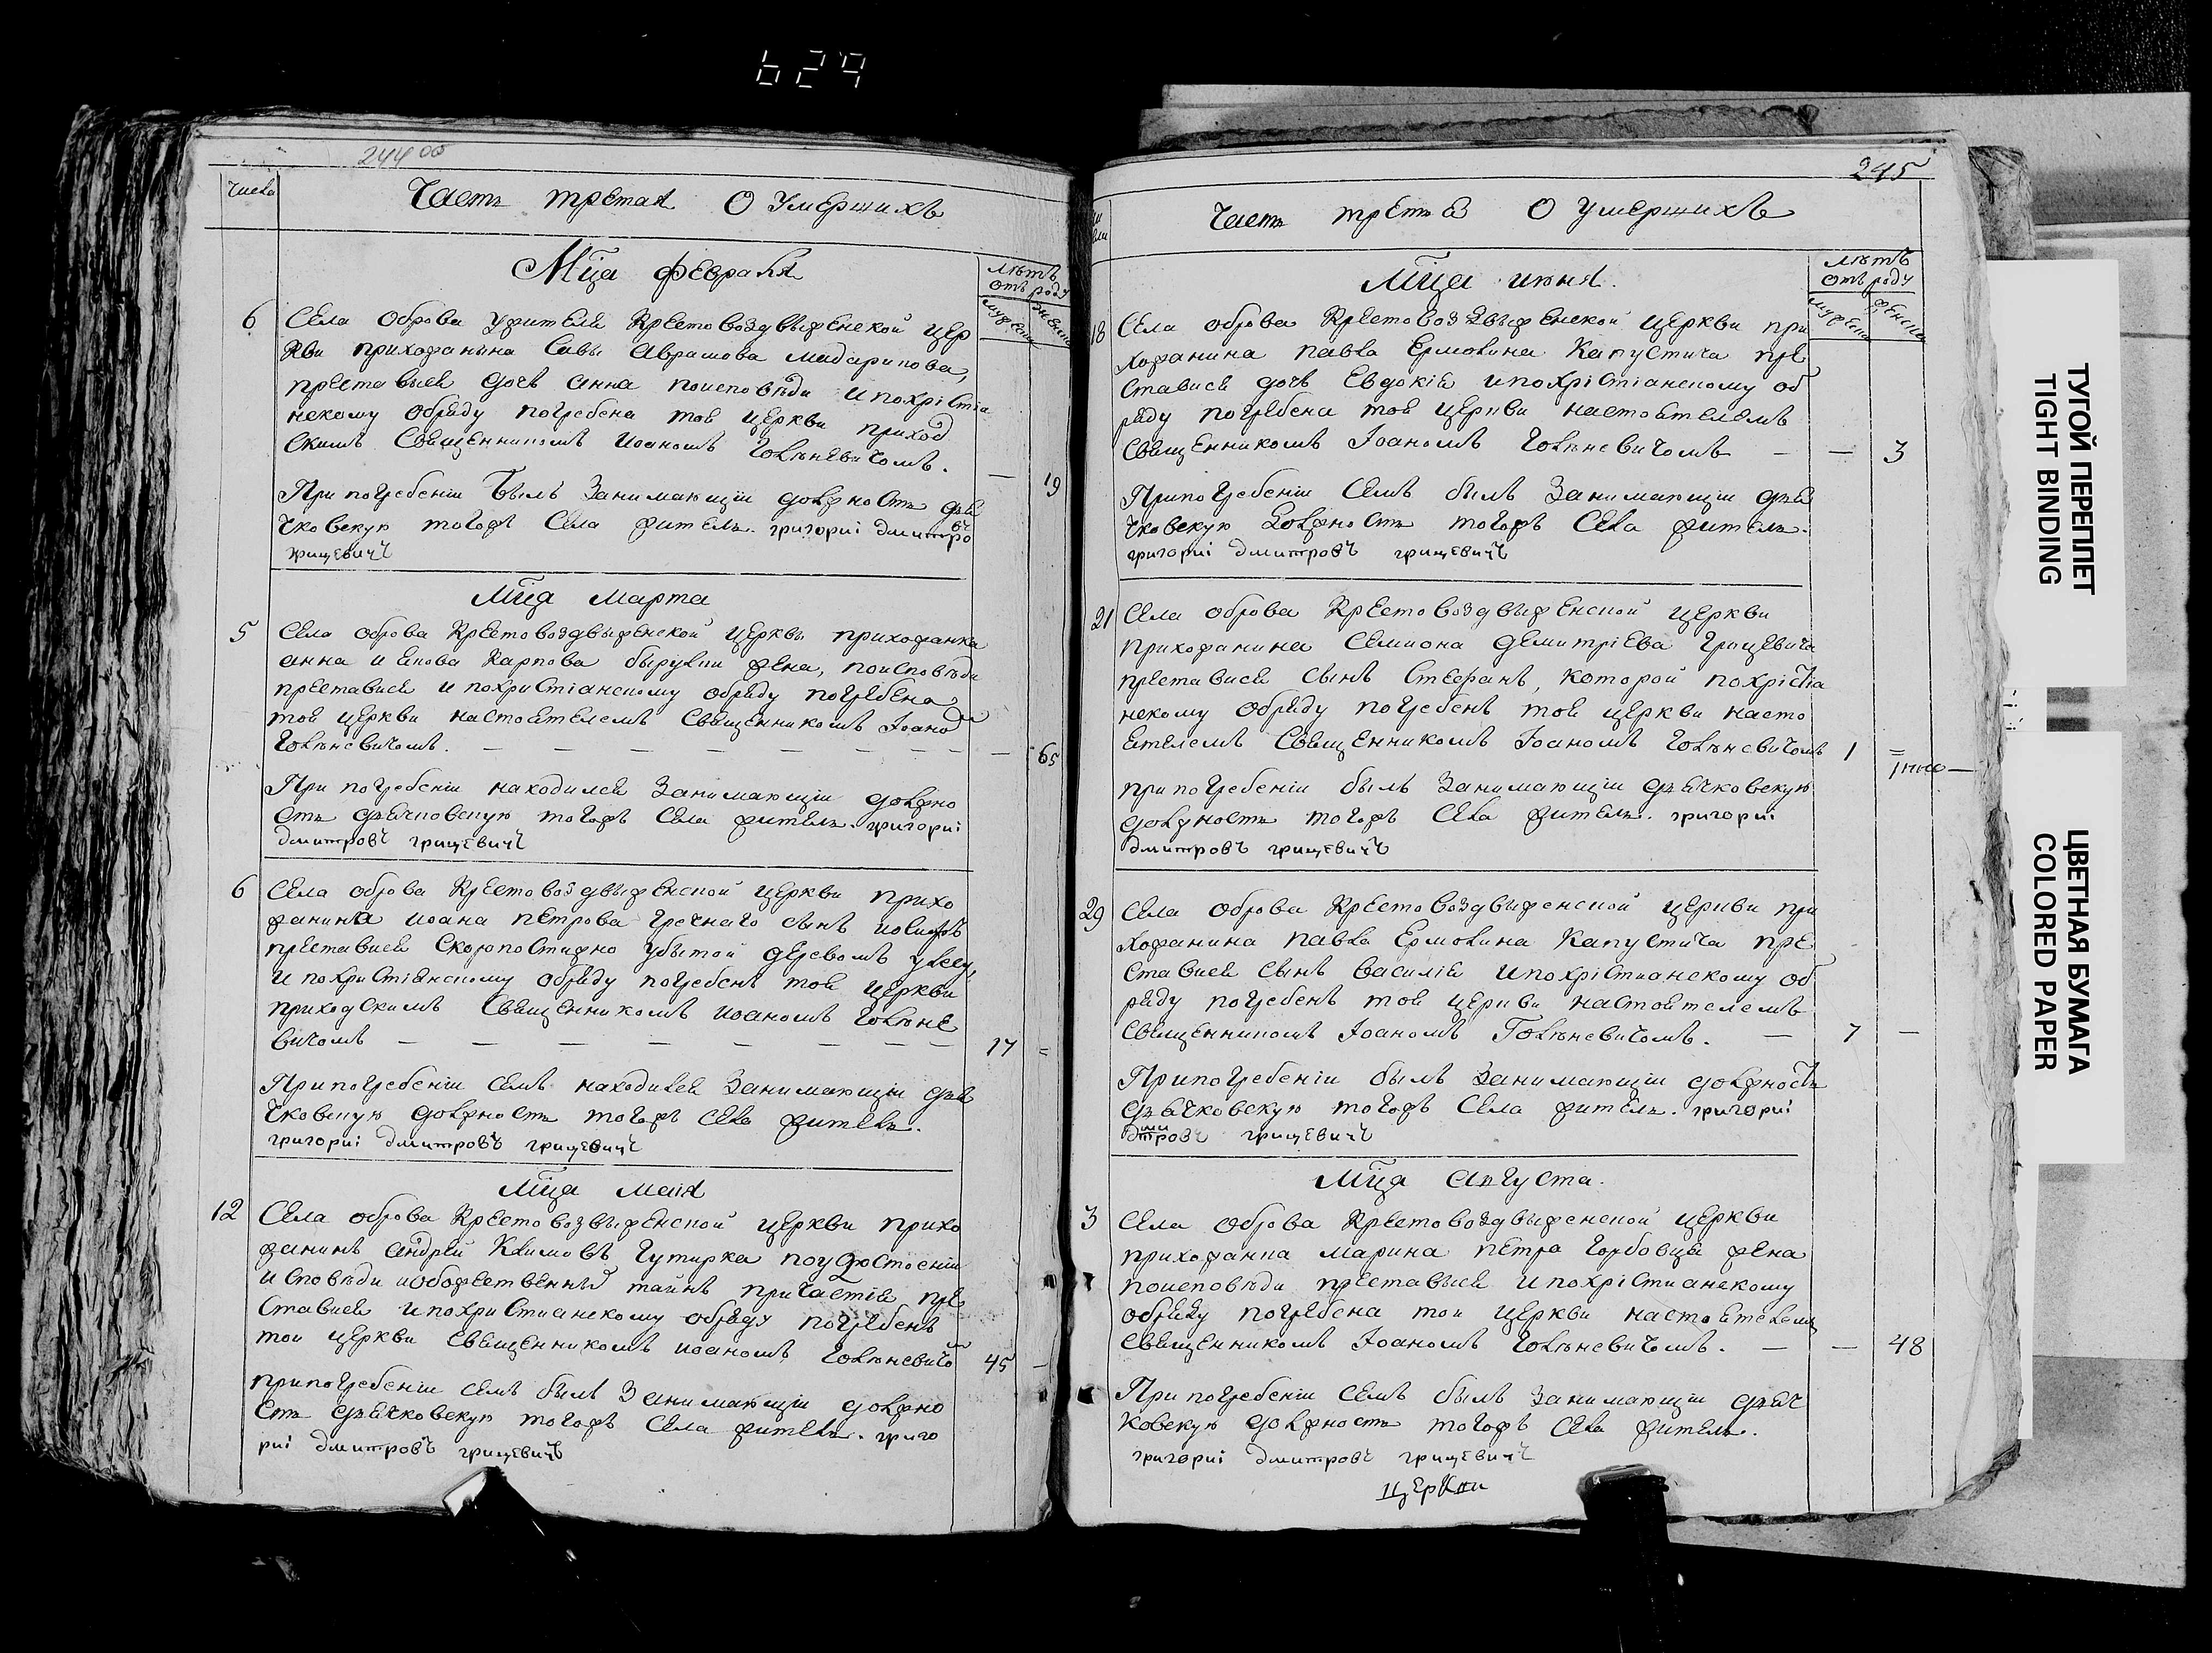 629
244 об
числа
Часть третая О Умершихъ
Мц̃а февраля
лѣтъ
отъ роду
мужеска
женска
6
Села оброва ужителя Крестовоздвыженской цер
кви прихожанина Савы Аврамова
преставыся дочь анна поисповѣди ипохрістіа
нскому обряду погребена той церкви приход
скимъ Священникомъ иоаномъ Голѣневичомъ. — 19
При погребеніи былъ Занимающіи должность дья
чковскую тогожъ Села житель. григориі дмитровъ
грицевичъ
Мц̃а Марта
5
Села оброва Крестовоздвыженской Церкви прихожанка
анна и Карпова жена, поисповѣди
преставися и похристіанскому обряду погребена
той церкви настоятелемъ Священникомъ Іоаном
Голѣневичомъ. — — — — — — — — 65
При погребеніи находился Занимающіи должно
сть дьячковскую тогожъ Села житель. григориі
дмитровъ грицевичъ
6
Села оброва Крестовоздвыженской Церкви прихо
жанина иоана петрова Гречнаго сынъ иосифъ
преставися Скоропостижно убытой деревомъ улесу,
и похристіянскому обряду погребенъ той церкви
приходскимъ Священникомъ иоаномъ Голѣне
вичомъ — — — — — — — 17 =
Припогребеніи семъ находился Занимающіи дья
чковскую должность тогожъ села житель.
григориі дмитровъ грицевичъ
Мц̃а Маія
12
Села оброва Крестовозвыженской церкви прихо
жанинъ андрей Климовъ Гутирка поудостоеніи
исповѣди ибожественныхъ тайнъ причастія пре
ставися ипохристианскому обряду погребенъ
той церкви священникомъ иоаномъ Голѣневичом 45 —
припогребеніи семъ былъ Занимающіи должно
сть дьячковскую тогожъ Села житель. григо
риі дмитровъ грицевичъ
245
Часть третья О умершихъ
Мц̃а июня.
лѣтъ
отъ роду
мужеска
женска
18
Села оброва Крестовоздвыженской церкви при
хожанина павла Ермолина Капустича пре
ставися дочь Евдокія ипохрістіанскому об
ряду погребена той церкви настоятелемъ
Священникомъ Іоаномъ Голѣневичомъ — — 3
Припогребеніи Семъ былъ Занимающіи дья
чковскую должность тогожъ Села житель.
григориі дмитровъ грицевичъ
21
Села оброва Крестовоздвыженской церкви
прихожанина Семиона демитріева Грицевича
преставися сынъ Стефанъ, которой похрістіа
нскому обряду погребенъ той церкви насто
ятелемъ Священникомъ Іоаномъ Голѣневичомъ 1 =
припогребеніи былъ Занимающіи дьячковскую
должность тогожъ Села житель. григориі
дмитровъ грицевичъ
29
Села оброва Крестовоздвыженской церкви при
хожанина павла Ермолина Капустича пре
ставися сынъ василій ипохрістианскому об
ряду погребенъ той церкви настоятелемъ
священникомъ Іоаномъ Голѣневичомъ. — 7 —
Припогребеніи былъ Занимающіи должность
дьячковскую тогожъ Села житель. григориі
дмитровъ грицевичъ
Мц̃а августа.
3
Села оброва Крестовоздвыженской церкви
прихожанка марина петра Горбовця жена
поисповѣди преставыся ипохрістианскому
обряду погребена той церкви настоятелемъ
священникомъ Іоаномъ Голѣневичомъ. — — 48
При погребеніи семъ былъ Занимающіи дьяч
ковскую должность тогожъ Села житель.
григориі дмитровъ грицевичъ
церкви
ТУГОЙ ПЕРЕПЛЕТ
TIGHT BINDING
ЦВЕТНАЯ БУМАГА
COLORED PAPER